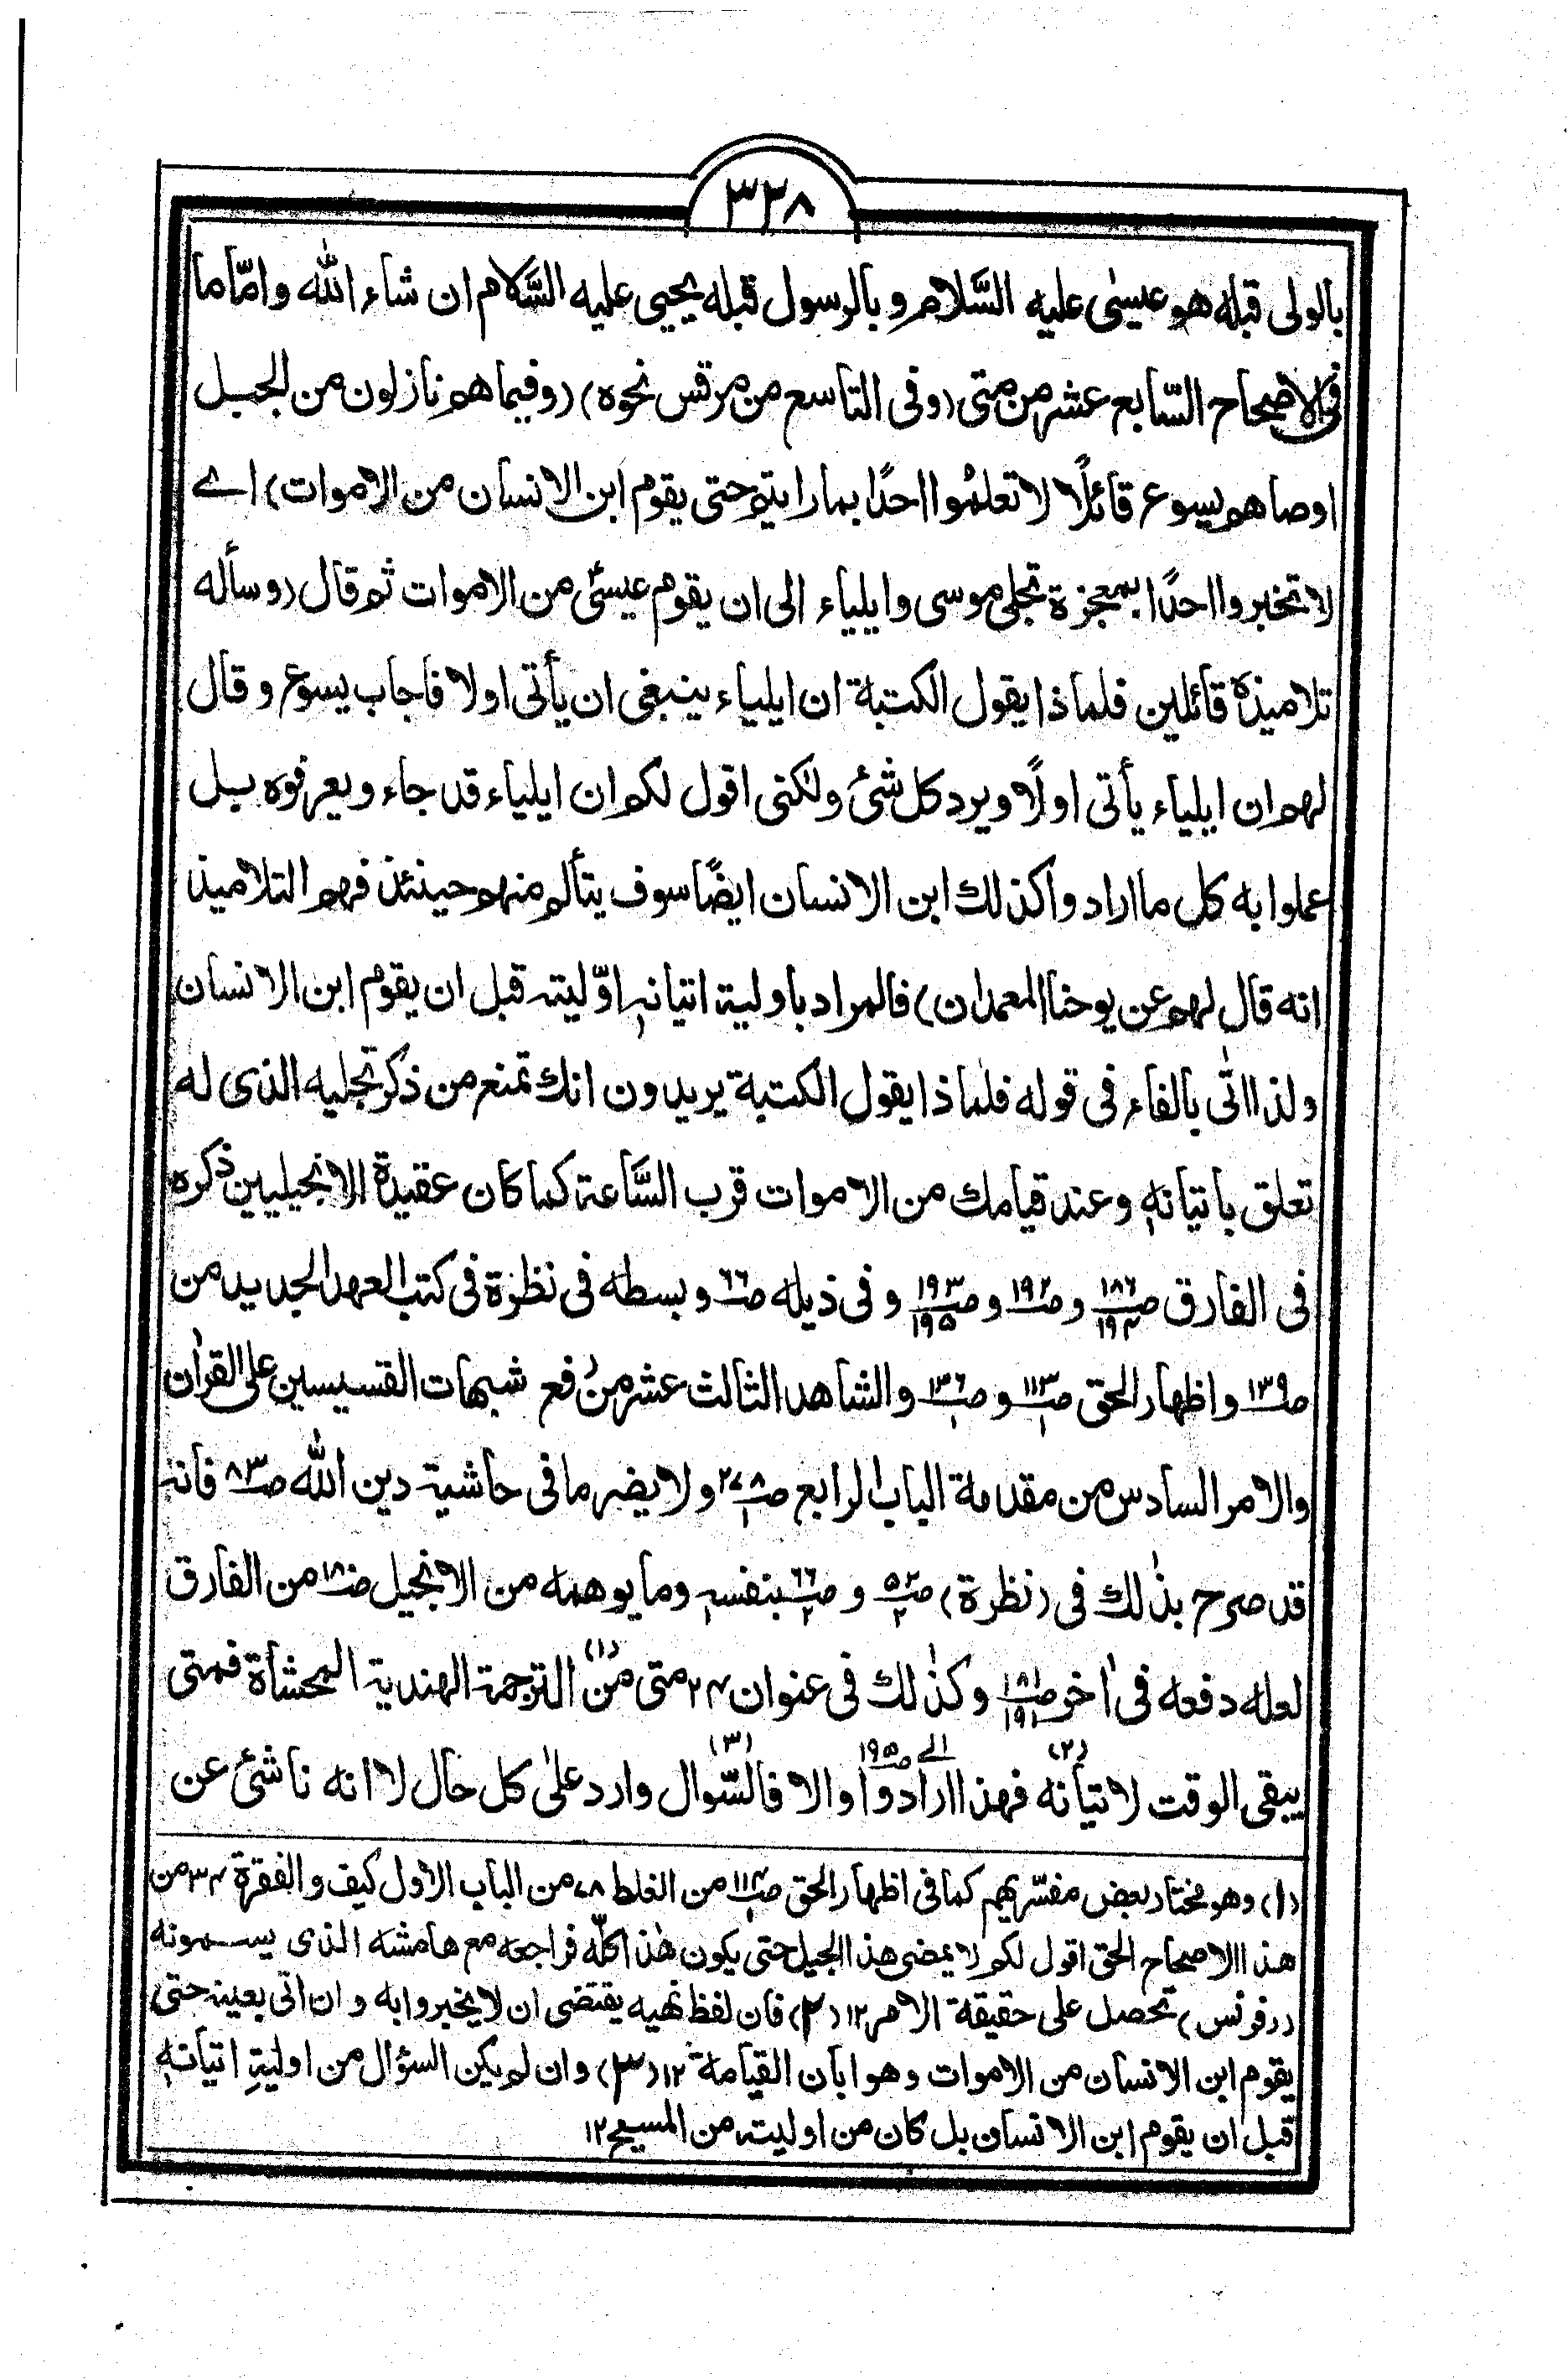 ٣٣٨
بالولى قبله هو عيسىٰ عليه السَّلام وبالرسول قبله يحيى عليه السَّلام ان شاء الله وامّا ما
فى الاصحاح السّابع عشر من متى (وفى التاسع من مرقس نحوه) (وفيما هم نازلون من الجبل
اوصاهم يسوع قائلًا لا تعلمُوا احدًا بما رايتم حتى يقوم ابن الانسان من الاموات) اے
لا تخبروا احدًا بمعجزة تجلى موسى وايلياء الى ان يقوم عيسىٰ من الاموات ثم قال (وسأله
تلاميذه قائلين فلماذا يقول الكتبة ان ايلياء ينبغى ان يأتى اولا فاجاب يسوع وقال
لهم ان ايلياء يأتى اولًا ويرد كل شئ ولكنى اقول لكم ان ايلياء قد جاء ويعرفوه بل
عملوا به كل ما اراد واكذلك ابن الانسان ايضًا سوف يتألم منهم حينئذ فهم التلاميذ
انه قال لهم عن يوحنا المعمدان) فالمراد باولية اتيانهٖ اوّليته قبل ان يقوم ابن الانسان
ولذا اتٰى بالفاء فى قوله فلماذا يقول الكتبة يريدون انك تمنع من ذكر تجليه الذى له
تعلق باتيانهٖ وعند قيامك من الاموات قرب السَّاعة كما كان عقيدة الانجيليين ذكره
فى الفارق صـ١٨٦/١٩٤ و صـ١٩٢ و صـ١٩٣/١٩٥ وفى ذيله صـ٦٦ وبسطه فى نظرة فى كتب العهد الجديد من
صـ١٣٩ واظهار الحق صـ١١٣/١ و صـ١٣٦/١ والشاهد الثالث عشر من رفع شبهات القسيسين على القراٰن
والامر السادس من مقدمة الباب الرابع صـ٢٧٨/١ ولا يضر ما فى حاشية دين الله صـ٨٣ فانه
قد صرح بذٰلك فى (نظرة) صـ٥٢/٢ و صـ٦٦/٢ بنفسهٖ وما يوهمه من الانجيل صـ١٨٠ من الفارق
لعله دفعه فى اٰخر صـ١٨١/١٩١ وكذٰلك فى عنوان ٢٤ متى من (١) الترجمة الهندية المحشاة فمتى
يبقى الوقت لاتيانه (٢) فهذا ارادوا الے صـ١٩٥ والا فالسّوال (٣) وارد علىٰ كل حال لا انه ناشئ عن
(١) وهو مختار بعض مفسّريهم كما فى اظهار الحق صـ١١٤/١ من الغلط ٧٨ من الباب الاول كيف والفقرة ٣٤ من
هذا الاصحاح الحق اقول لكم لا يمضى هذا الجيل حتى يكون هٰذا كلّه فراجعه مع هامشه الذى يسمونه
(رفرنس) تحصل على حقيقة الامر ١٢ (٢) فان لفظ نهيه يقتضى ان لا يخبروا به وان اتى بعينه حتى
يقوم ابن الانسان من الاموات وهو ابان القيامة ١٢ (٣) وان لم يكن السؤال من اوليةِ اتيانهٖ
قبل ان يقوم ابن الانسان بل كان من اوليته من المسيح ١٢